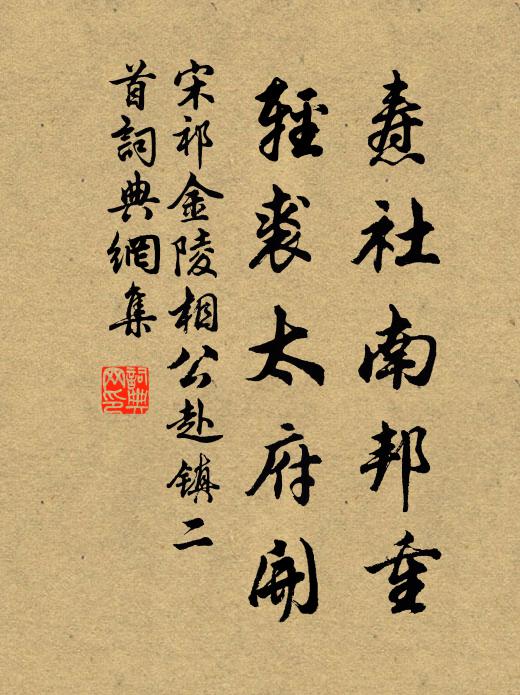 燾社南邦重
輕裘太府開
宋祁金陵相公赴鎮二
首詞典網集
詞典
网印